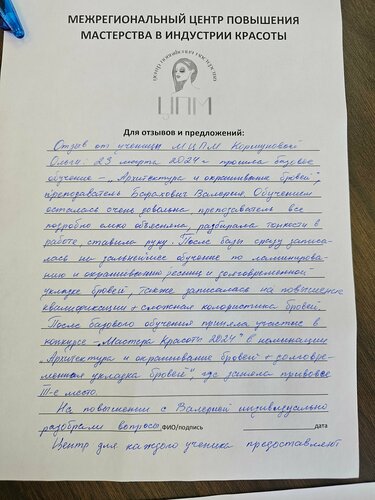 МЕЖРЕГИОНАЛЬНЫЙ ЦЕНТР ПОВЫШЕНИЯ
МАСТЕРСТВА В ИНДУСТРИИ КРАСОТЫ
центр повышения мастерства
ЦПМ
Для отзывов и предложений:
Отзыв от ученицы МЦПМ
Ольги. 23 марта 2024г прошла базовое
обучение - „Архитектура и окрашивание бровей",
преподаватель Барахович Валерия. Обучением
осталась очень довольна, преподаватель все
подробно объясняла, разбирала тонкости в
работе, ставила руку. После базы сразу записа-
лась на дальнейшее обучение по ламинирова-
нию и окрашиванию ресниц и долговременной
укладке бровей, также записалась на повышение
квалификации + сложная колористика бровей.
После базового обучения приняла участие в
конкурсе - „Мастера Красоты 2024" в номинации
„Архитектура и окрашивание бровей + долговре-
менная укладка бровей", где заняла призовое
III-е место.
На повышении с Валерией индивидуально
разобрали вопросы ФИО/подпись дата
Центр для каждого ученика предоставляет